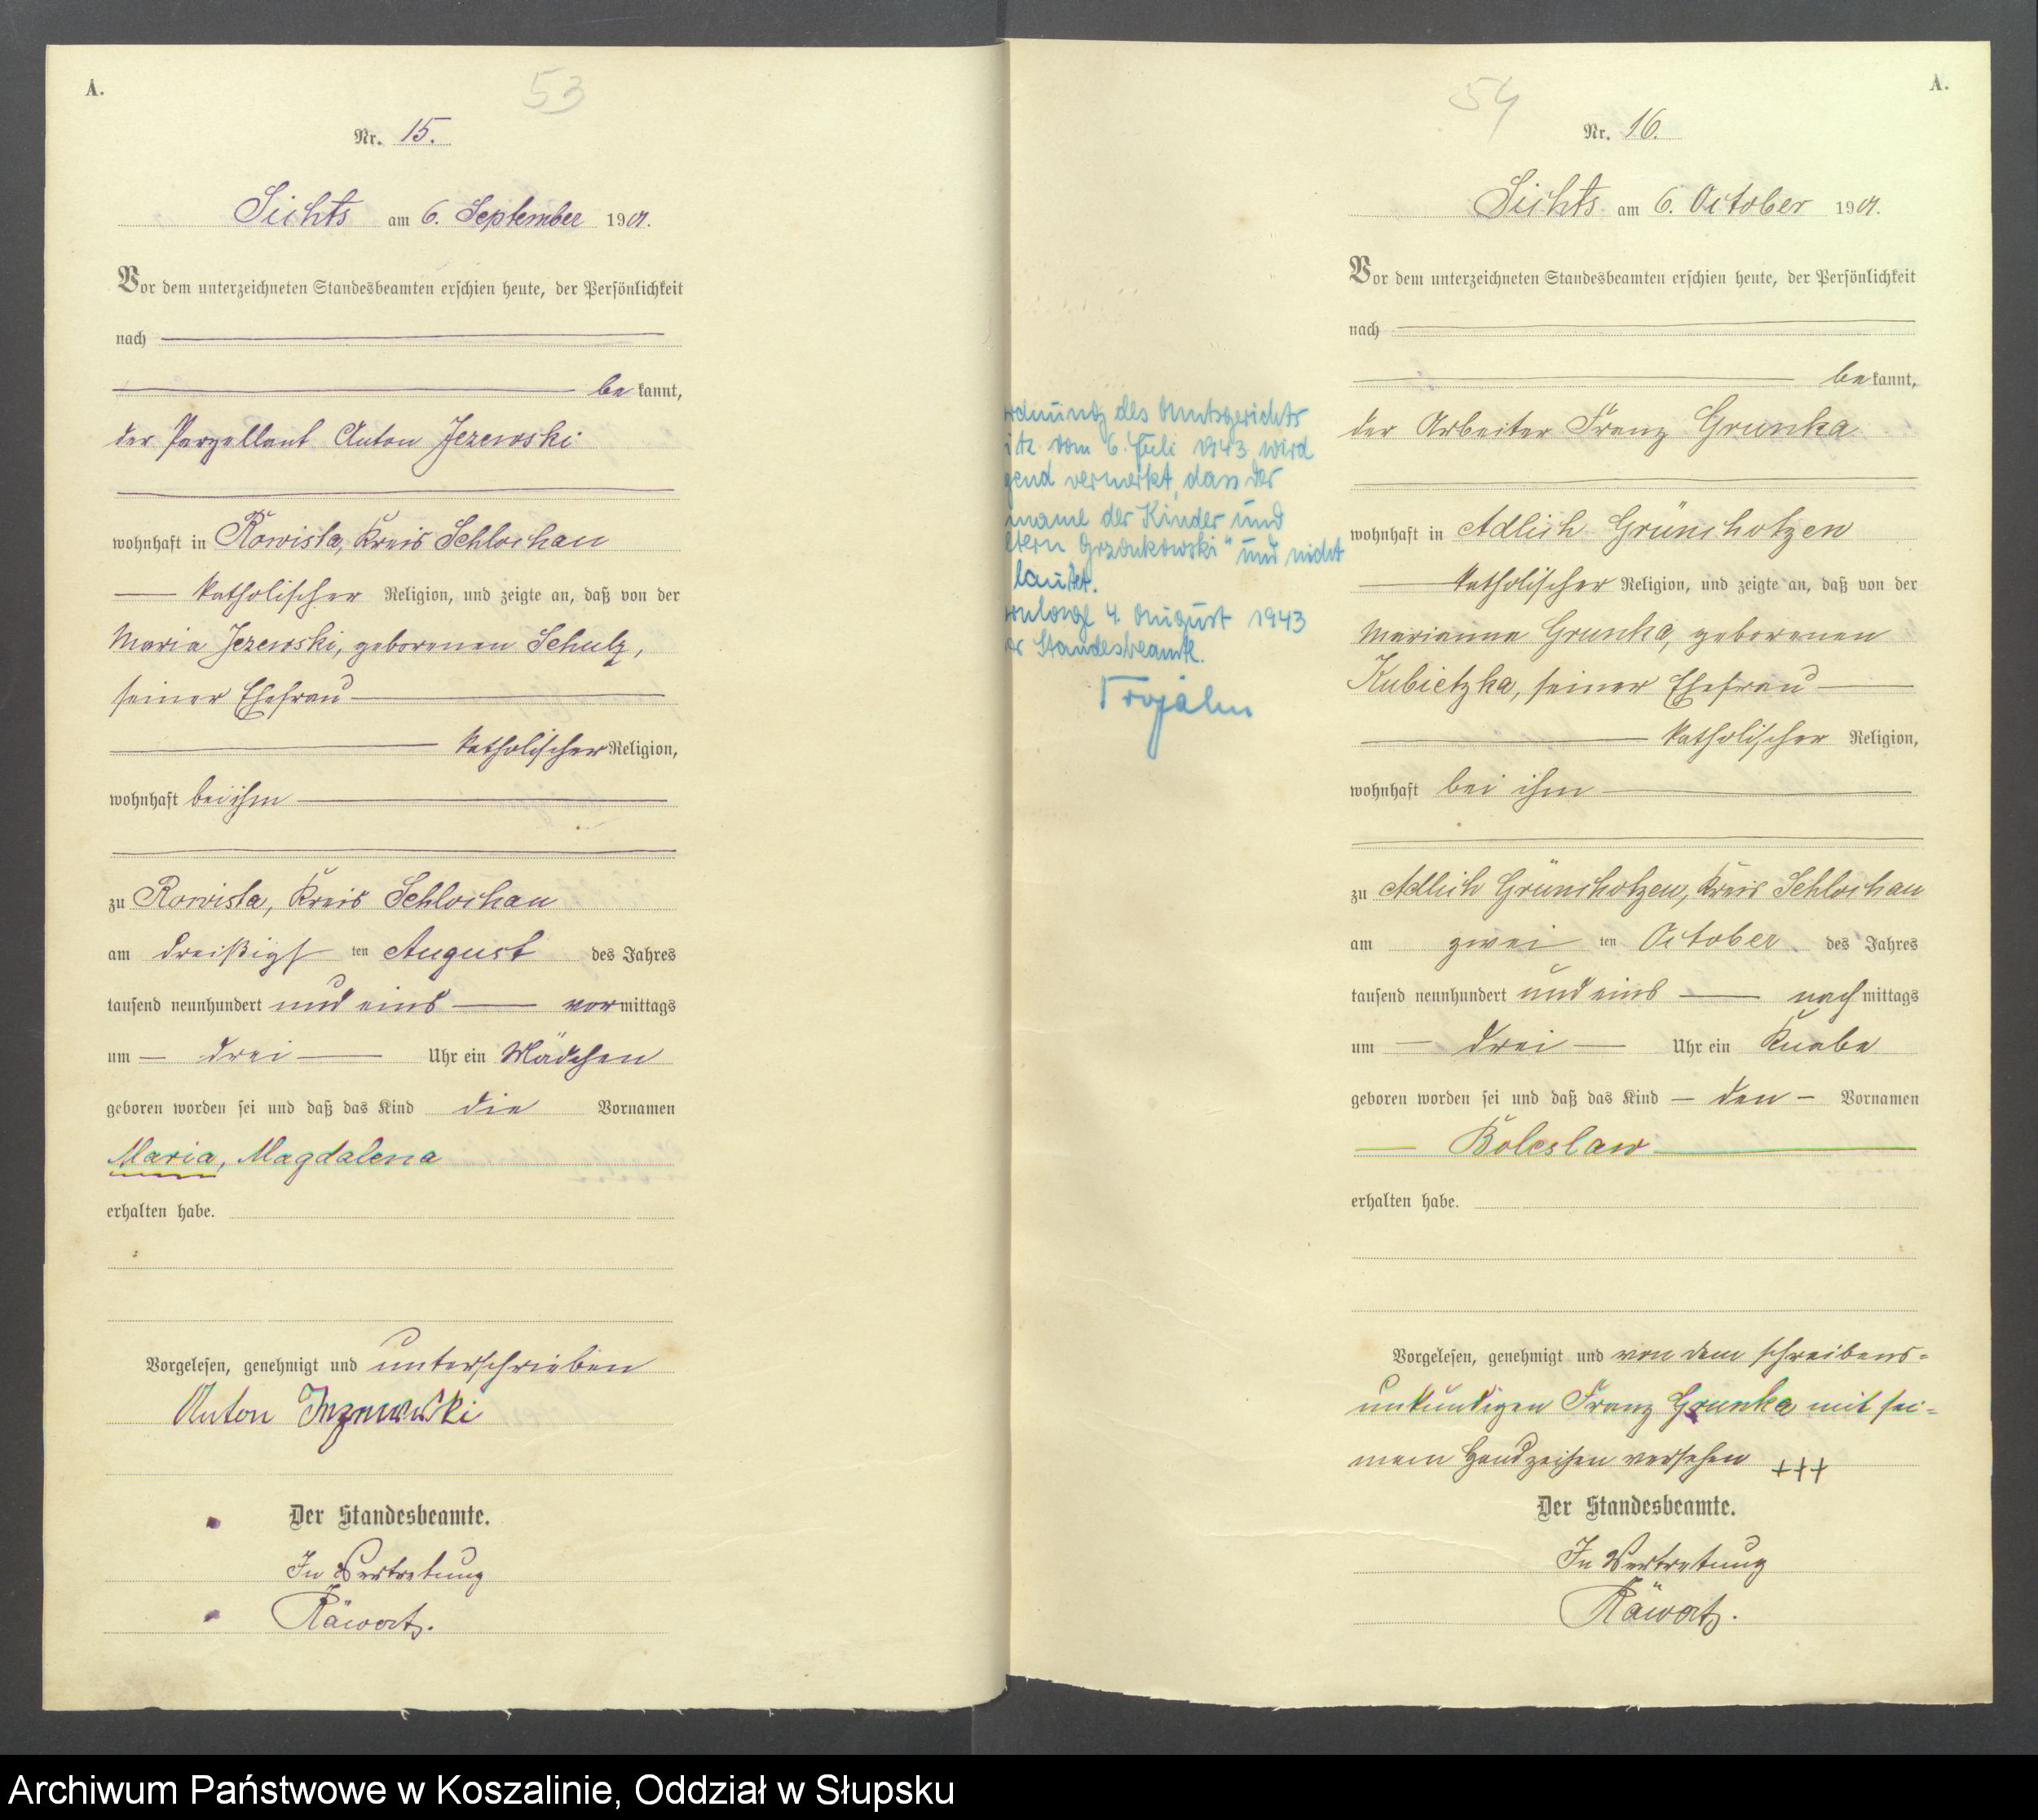 A.
53
Nr. 15.
Sichts am 6. September 1901.
Vor dem unterzeichneten Standesbeamten erschien heute, der Persönlichkeit
nach
be kannt,
der Parzellant Anton Jezewski
wohnhaft in Rowista, Kreis Schlochau
katholischer Religion, und zeigte an, daß von der
Maria Jezewski, geborenen Schulz,
seiner Ehefrau
katholischer Religion,
wohnhaft bei ihm
zu Rowista, Kreis Schlochau
am dreißigsten August des Jahres
tausend neunhundert und eins vormittags
um drei Uhr ein Mädchen
geboren worden sei und daß das Kind die Vornamen
Maria, Magdalena
erhalten habe.
Vorgelesen, genehmigt und unterschrieben
Anton
Der Standesbeamte.
In Vertretung
Räwert.
A.
54
Nr. 16.
Sichts am 6. October 1901.
Vor dem unterzeichneten Standesbeamten erschien heute, der Persönlichkeit
nach
be kannt,
der Arbeiter Franz Grunka
wohnhaft in Adlich Grünchotzen
katholischer Religion, und zeigte an, daß von der
Marianna Grunka, geborenen
Kubietzka, seiner Ehefrau
katholischer Religion,
wohnhaft bei ihm
zu Adlich Grünchotzen, Kreis Schlochau
am zwei ten October des Jahres
tausend neunhundert und eins nach mittags
um drei Uhr ein Knabe
geboren worden sei und daß das Kind den Vornamen
Boleslaw
erhalten habe.
Vorgelesen, genehmigt und von dem schreibens-
unkundigen Franz Grunka mit sei-
nem Handzeichen versehen +++
Der Standesbeamte.
In Vertretung
Räwert.
rdnung des Amtsgerichts
itz vom 6. Juli 1943 wird
gend vermerkt, dass der
name der Kinder und
ltern Grzonkowski" und nicht
lautet.
4. August 1943
er Standesbeamte.
Trojahn
Archiwum Państwowe w Koszalinie, Oddział w Słupsku